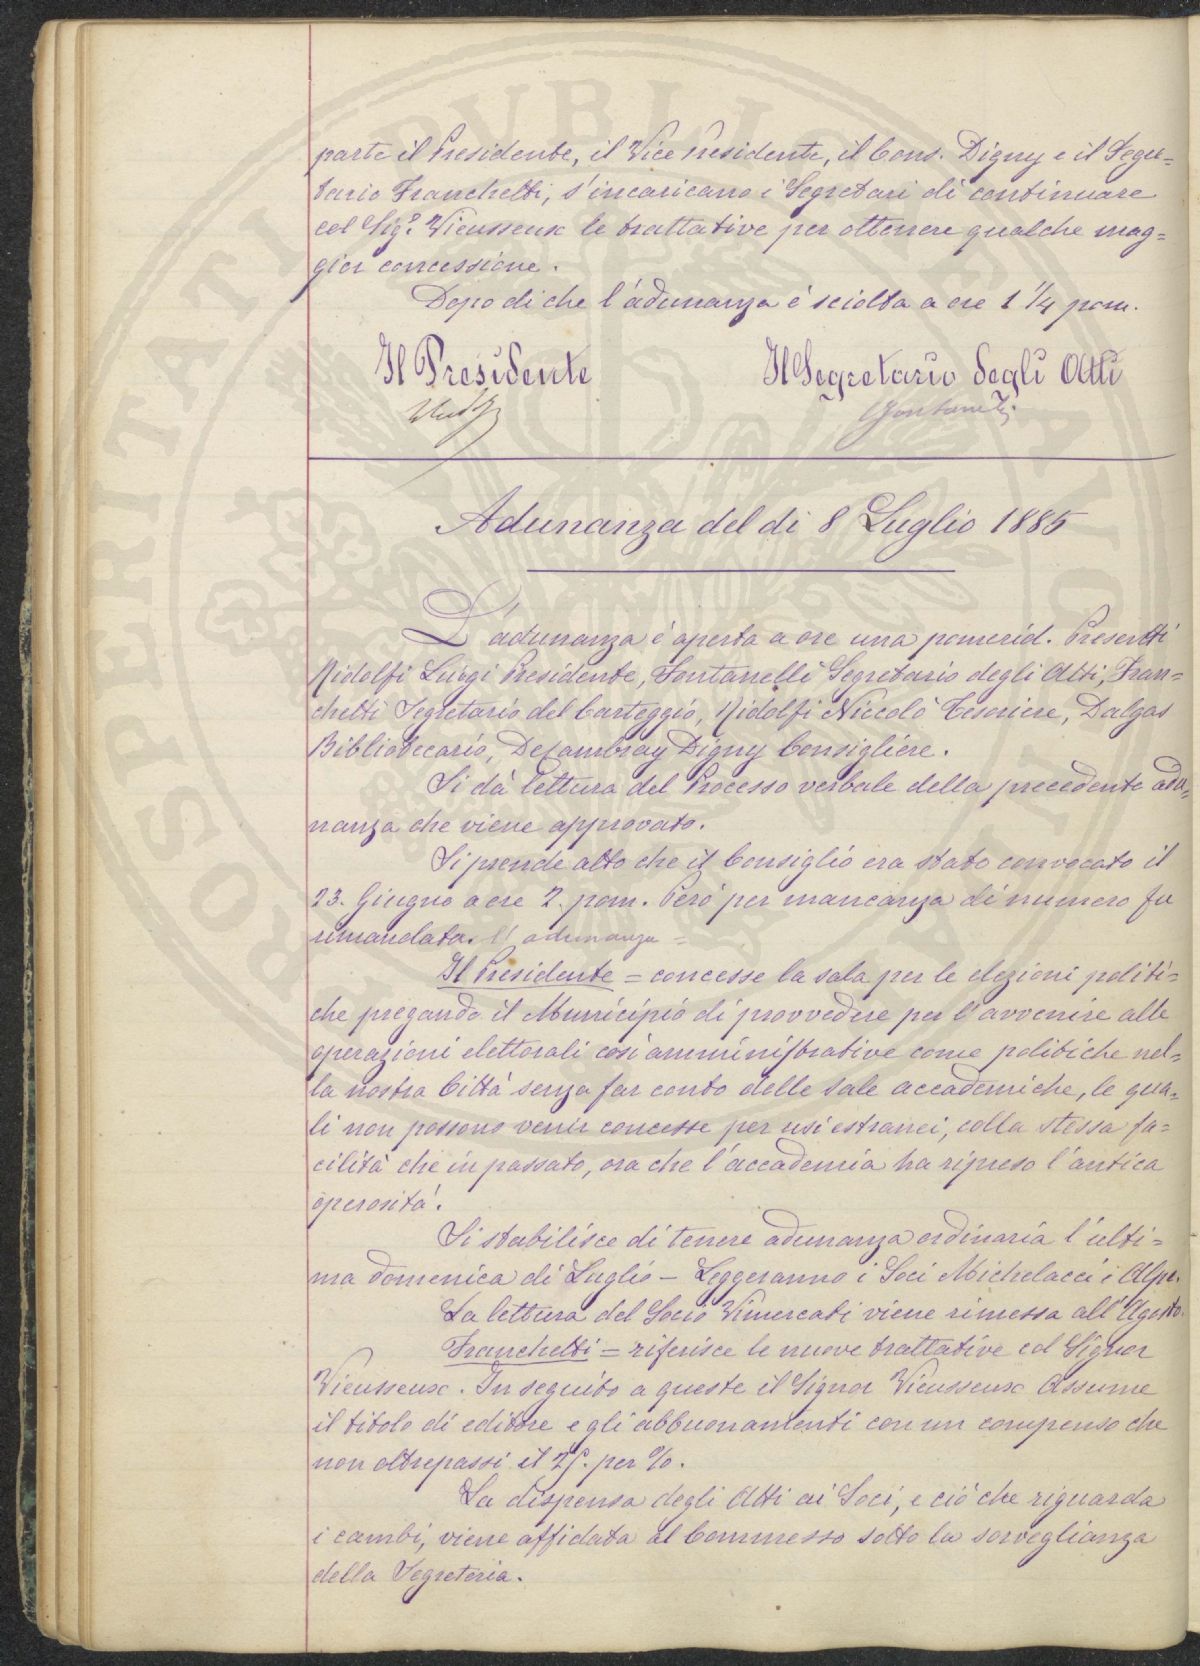 parte il Presidente, il Vice Presidente, il Cons. Digny e il Segre=
tario Franchetti, s'incaricano i Segretari di continuare
col Sigr. Vieusseux le trattative per ottenere qualche mag=
gior concessione.
Dopo di che l'adunanza é sciolta a ore 1 1/4 pom.
Il Presidente
Il Segretario degli Atti
Adunanza del dì 8 Luglio 1885
L'adunanza é aperta a ore una pomerid. Presenti
Ridolfi Luigi Presidente, Fontanelli Segretario degli Atti, Fran=
chetti Segretario del Carteggio, Ridolfi Niccolò Tesoriere, Dalgas
Bibliotecario, De Cambray Digny Consigliere.
Si dà lettura del Processo verbale della precedente adu=
nanza che viene approvato.
Si prende atto che il Consiglio era stato convocato il
23. Giugno a ore 2. pom. Però per mancanza di numero fu
rimandata. l'adunanza =
Il Presidente = concesse la sala per le elezioni politi=
che pregando il Municipio di provvedere per l'avvenire alle
operazioni elettorali così amministrative come politiche nel=
la nostra Città senza far conto delle Sale accademiche, le qua=
li non possono venir concesse per usi estranei, colla stessa fa=
cilità che in passato, ora che l'accademia ha ripreso l'antica
operosita'.
Si stabilisce di tenere adunanza ordinaria l'ulti=
ma domenica di Luglio - Leggeranno i Soci Michelacci e Alpe.
La lettura del Socio Vimercati viene rimessa all'Agosto.
Franchetti = riferisce le nuove trattative col Signor
Vieusseux. In seguito a queste il Signor Vieusseux assume
il titolo di editore e gli abbuonamenti con un compenso che
non oltrepassi il 25. per %.
La dispensa degli Atti ai Soci, e ciò che riguarda
i cambi, viene affidata al Commesso sotto la sorveglianza
della Segreteria.
PROSPERITATI PUBLICAE AUGENDAE